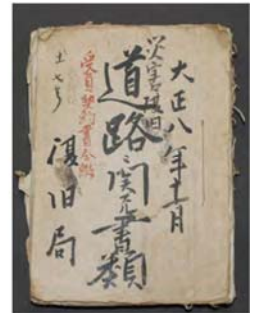 大正八年十一月
災害復旧
道路ニ関スル書類
受負契約書合綴
土七号
復旧局